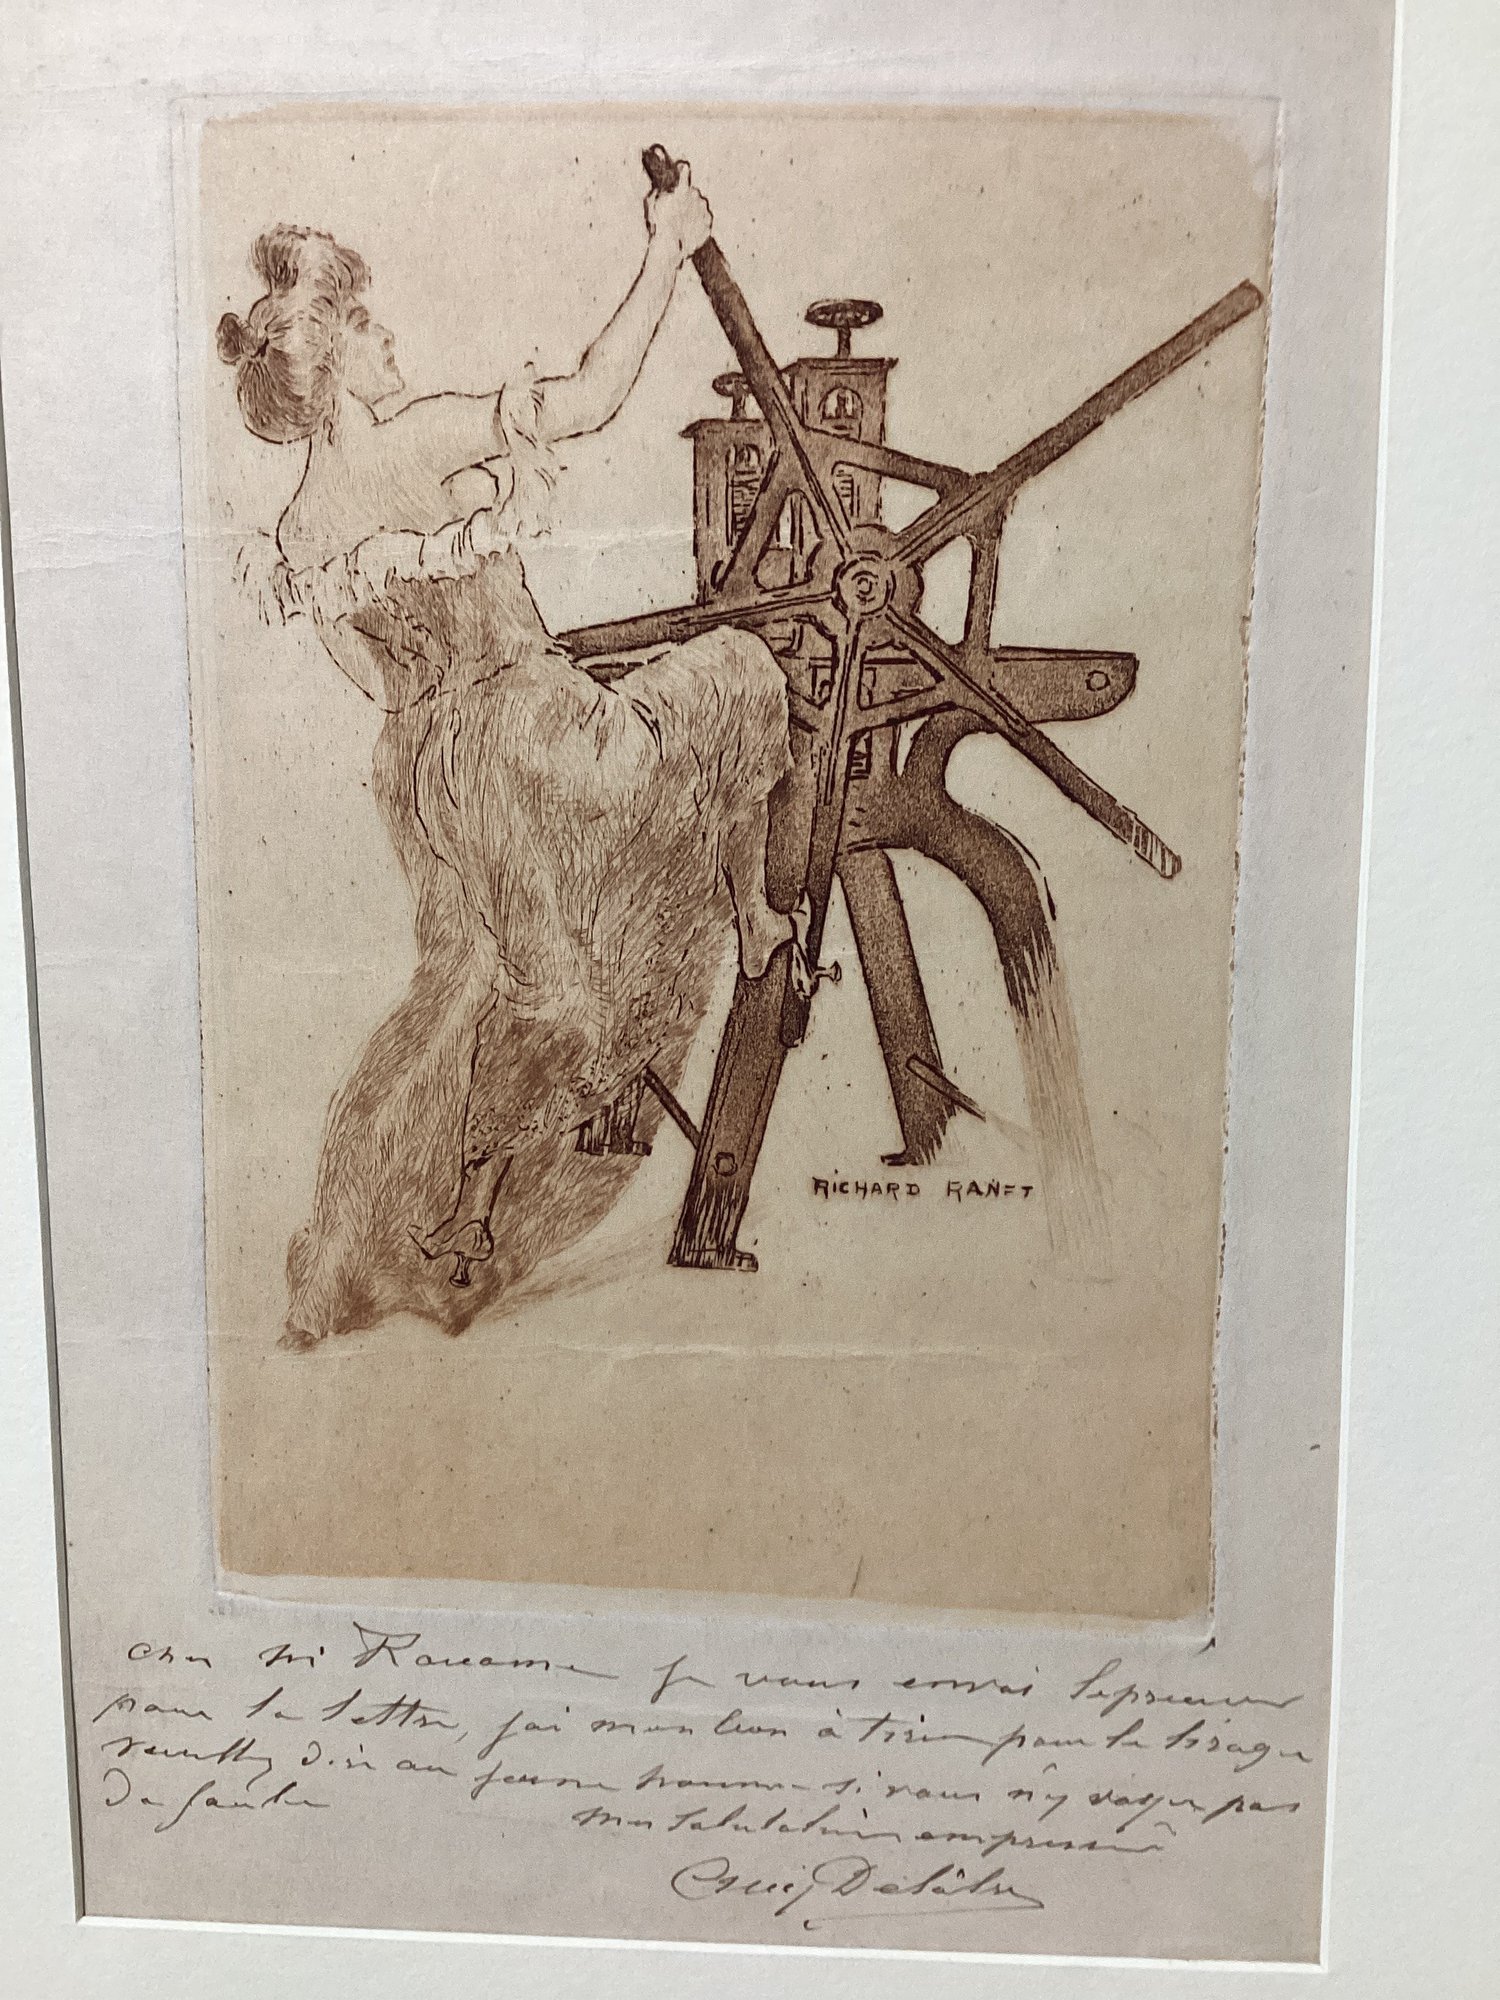 RICHARD RANFT
cher Mr je vous envoi l'epreuve
pour la lettre, j'ai mon bon à tirer pour le tirage
veuillez dire au jeune homme si vous n'y voyez pas
De faute
Mes salutations empressé
Eug Delâtre